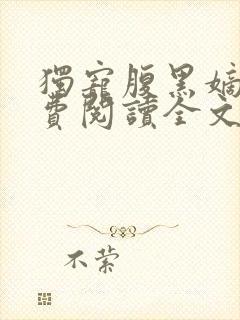 獨寵腹黑嫡
費閱讀全文
不縈